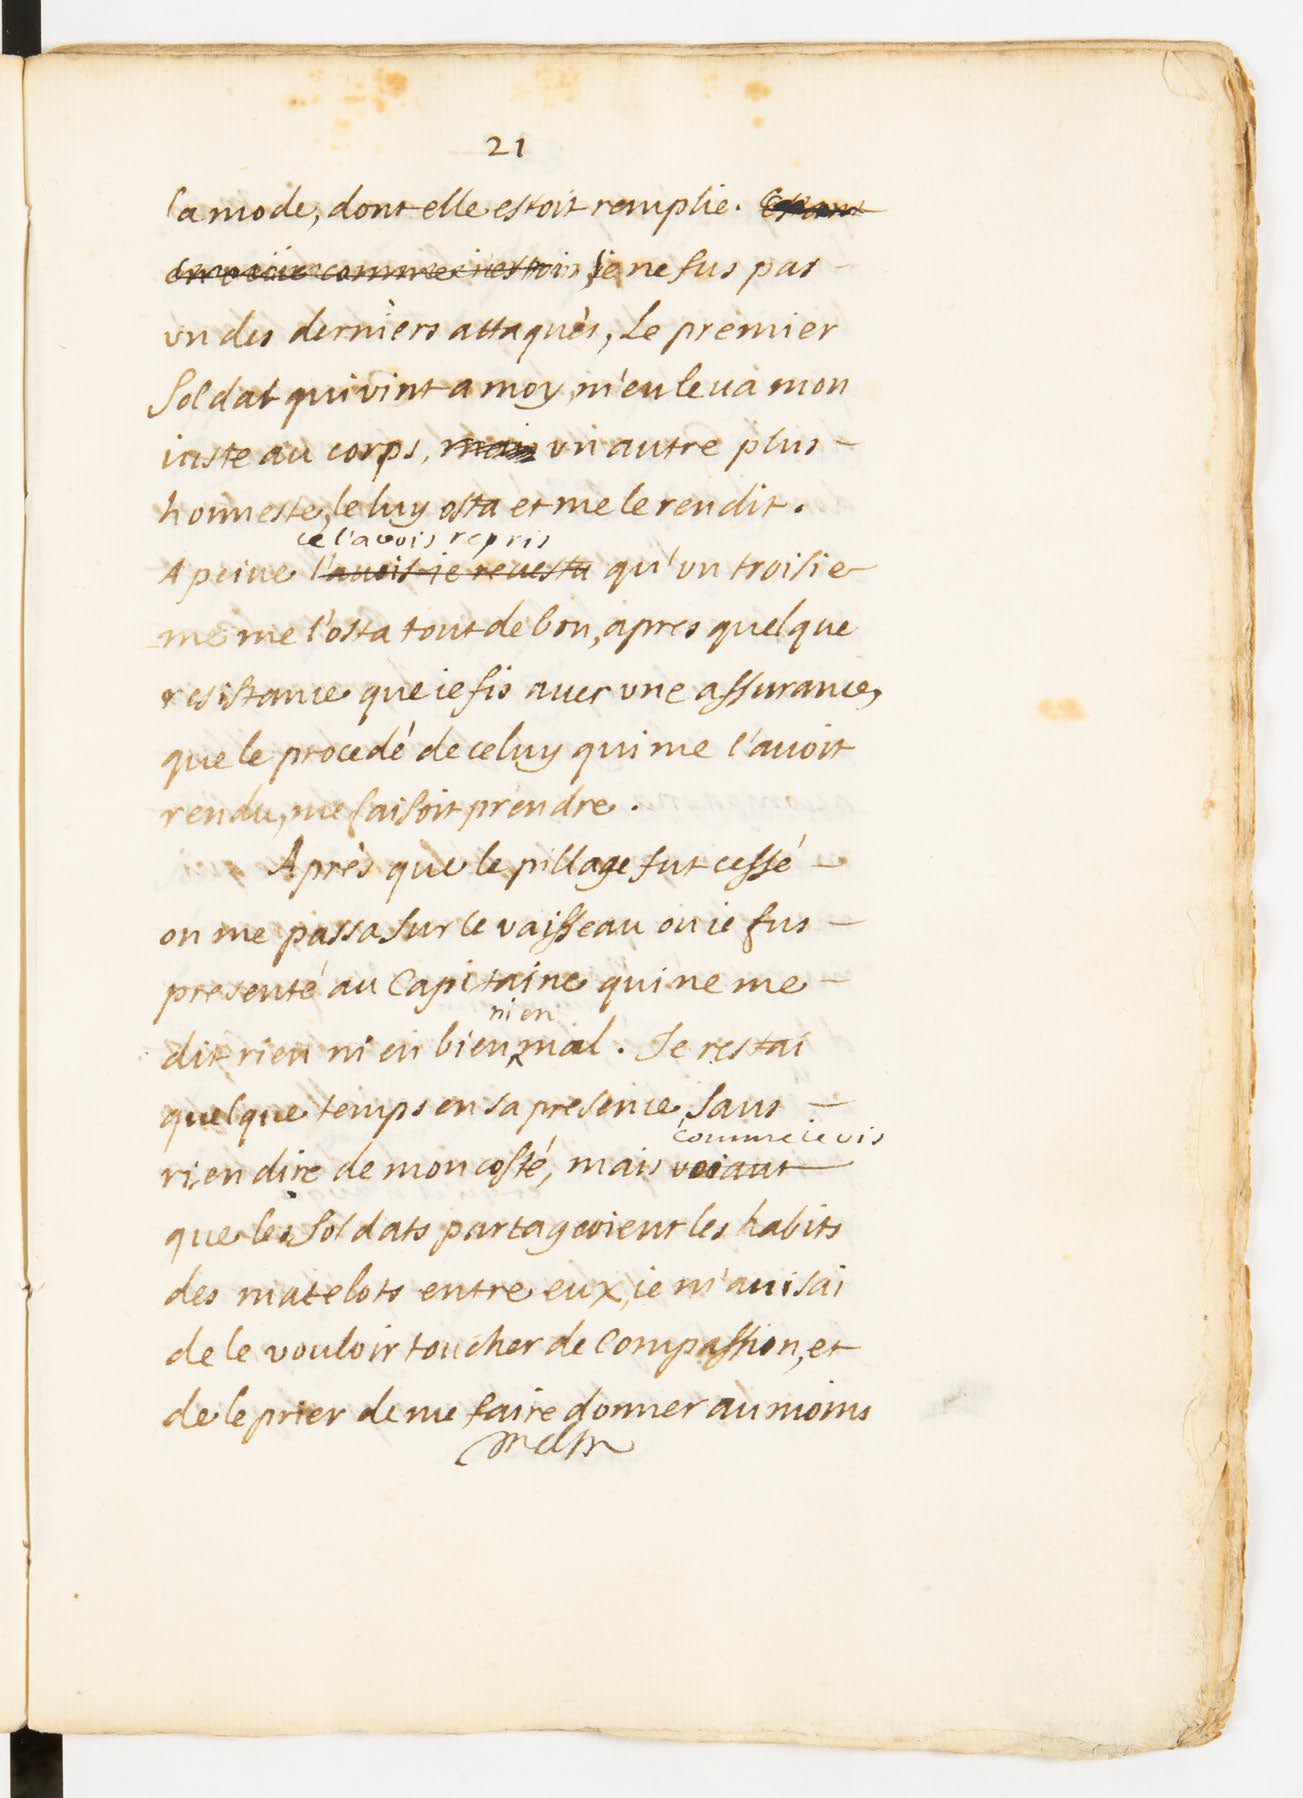 21
la mode, dont elle estoit remplie. Estant
comme i'estois, je ne fus pas
vn des derniers attaqués, Le premier
Soldat qui vint a moy, m'enleua mon
iuste au corps, mais vn autre plus
honneste, le luy osta et me le rendit.
ie l'avois repris
A peine l'auois-ie reuestu qu'vn troisie
me me l'osta tout de bon, apres quelque
resistance que ie fis auec vne assurance,
que le procedé de celuy qui me l'auoit
rendu, me faisoit prendre.
Aprés que le pillage fut cessé
on me passa sur le vaisseau ou ie fus
presenté au Capitaine qui ne me
ni en
dit rien ni en bien mal. Je restai
quelque temps en sa presence sans
comme ie vis
rien dire de mon costé, mais voiant
que les Soldats partageoient les habits
des matelots entre eux, ie m'auisai
de le vouloir toucher de Compassion, et
de le prier de me faire donner au moins